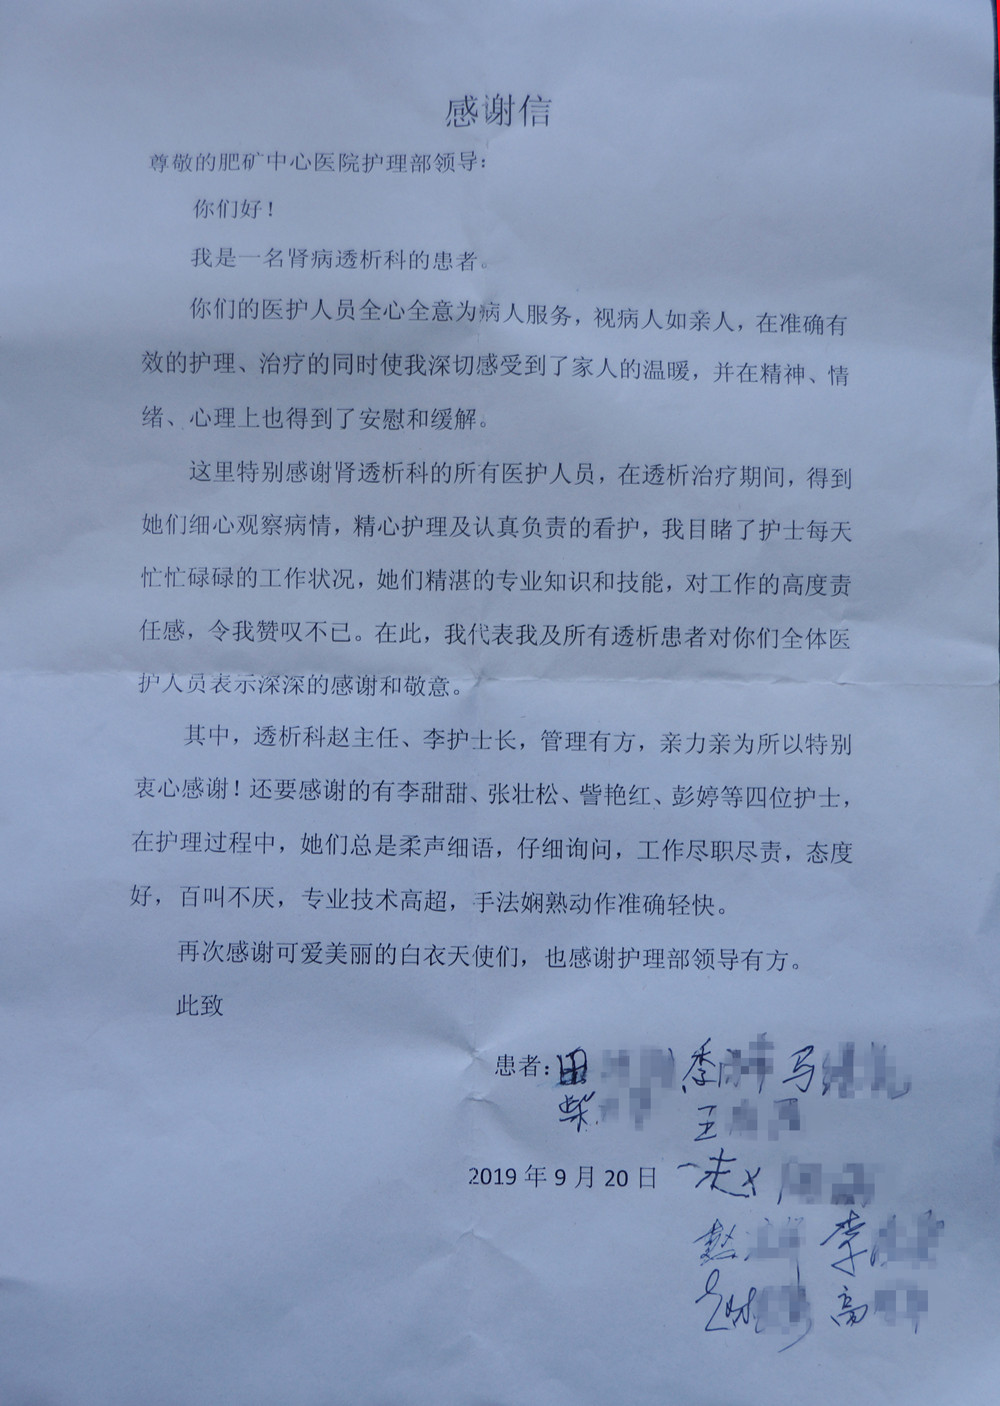 感谢信
尊敬的肥矿中心医院护理部领导：
你们好！
我是一名肾病透析科的患者。
你们的医护人员全心全意为病人服务，视病人如亲人，在准确有
效的护理、治疗的同时使我深切感受到了家人的温暖，并在精神、情
绪、心理上也得到了安慰和缓解。
这里特别感谢肾透析科的所有医护人员，在透析治疗期间，得到
她们细心观察病情，精心护理及认真负责的看护，我目睹了护士每天
忙忙碌碌的工作状况，她们精湛的专业知识和技能，对工作的高度责
任感，令我赞叹不已。在此，我代表我及所有透析患者对你们全体医
护人员表示深深的感谢和敬意。
其中，透析科赵主任、李护士长，管理有方，亲力亲为所以特别
衷心感谢！还要感谢的有李甜甜、张壮松、訾艳红、彭婷等四位护士，
在护理过程中，她们总是柔声细语，仔细询问，工作尽职尽责，态度
好，百叫不厌，专业技术高超，手法娴熟动作准确轻快。
再次感谢可爱美丽的白衣天使们，也感谢护理部领导有方。
此致
患者：田 季 马
柴 王
2019 年 9 月 20 日 赵
李
高